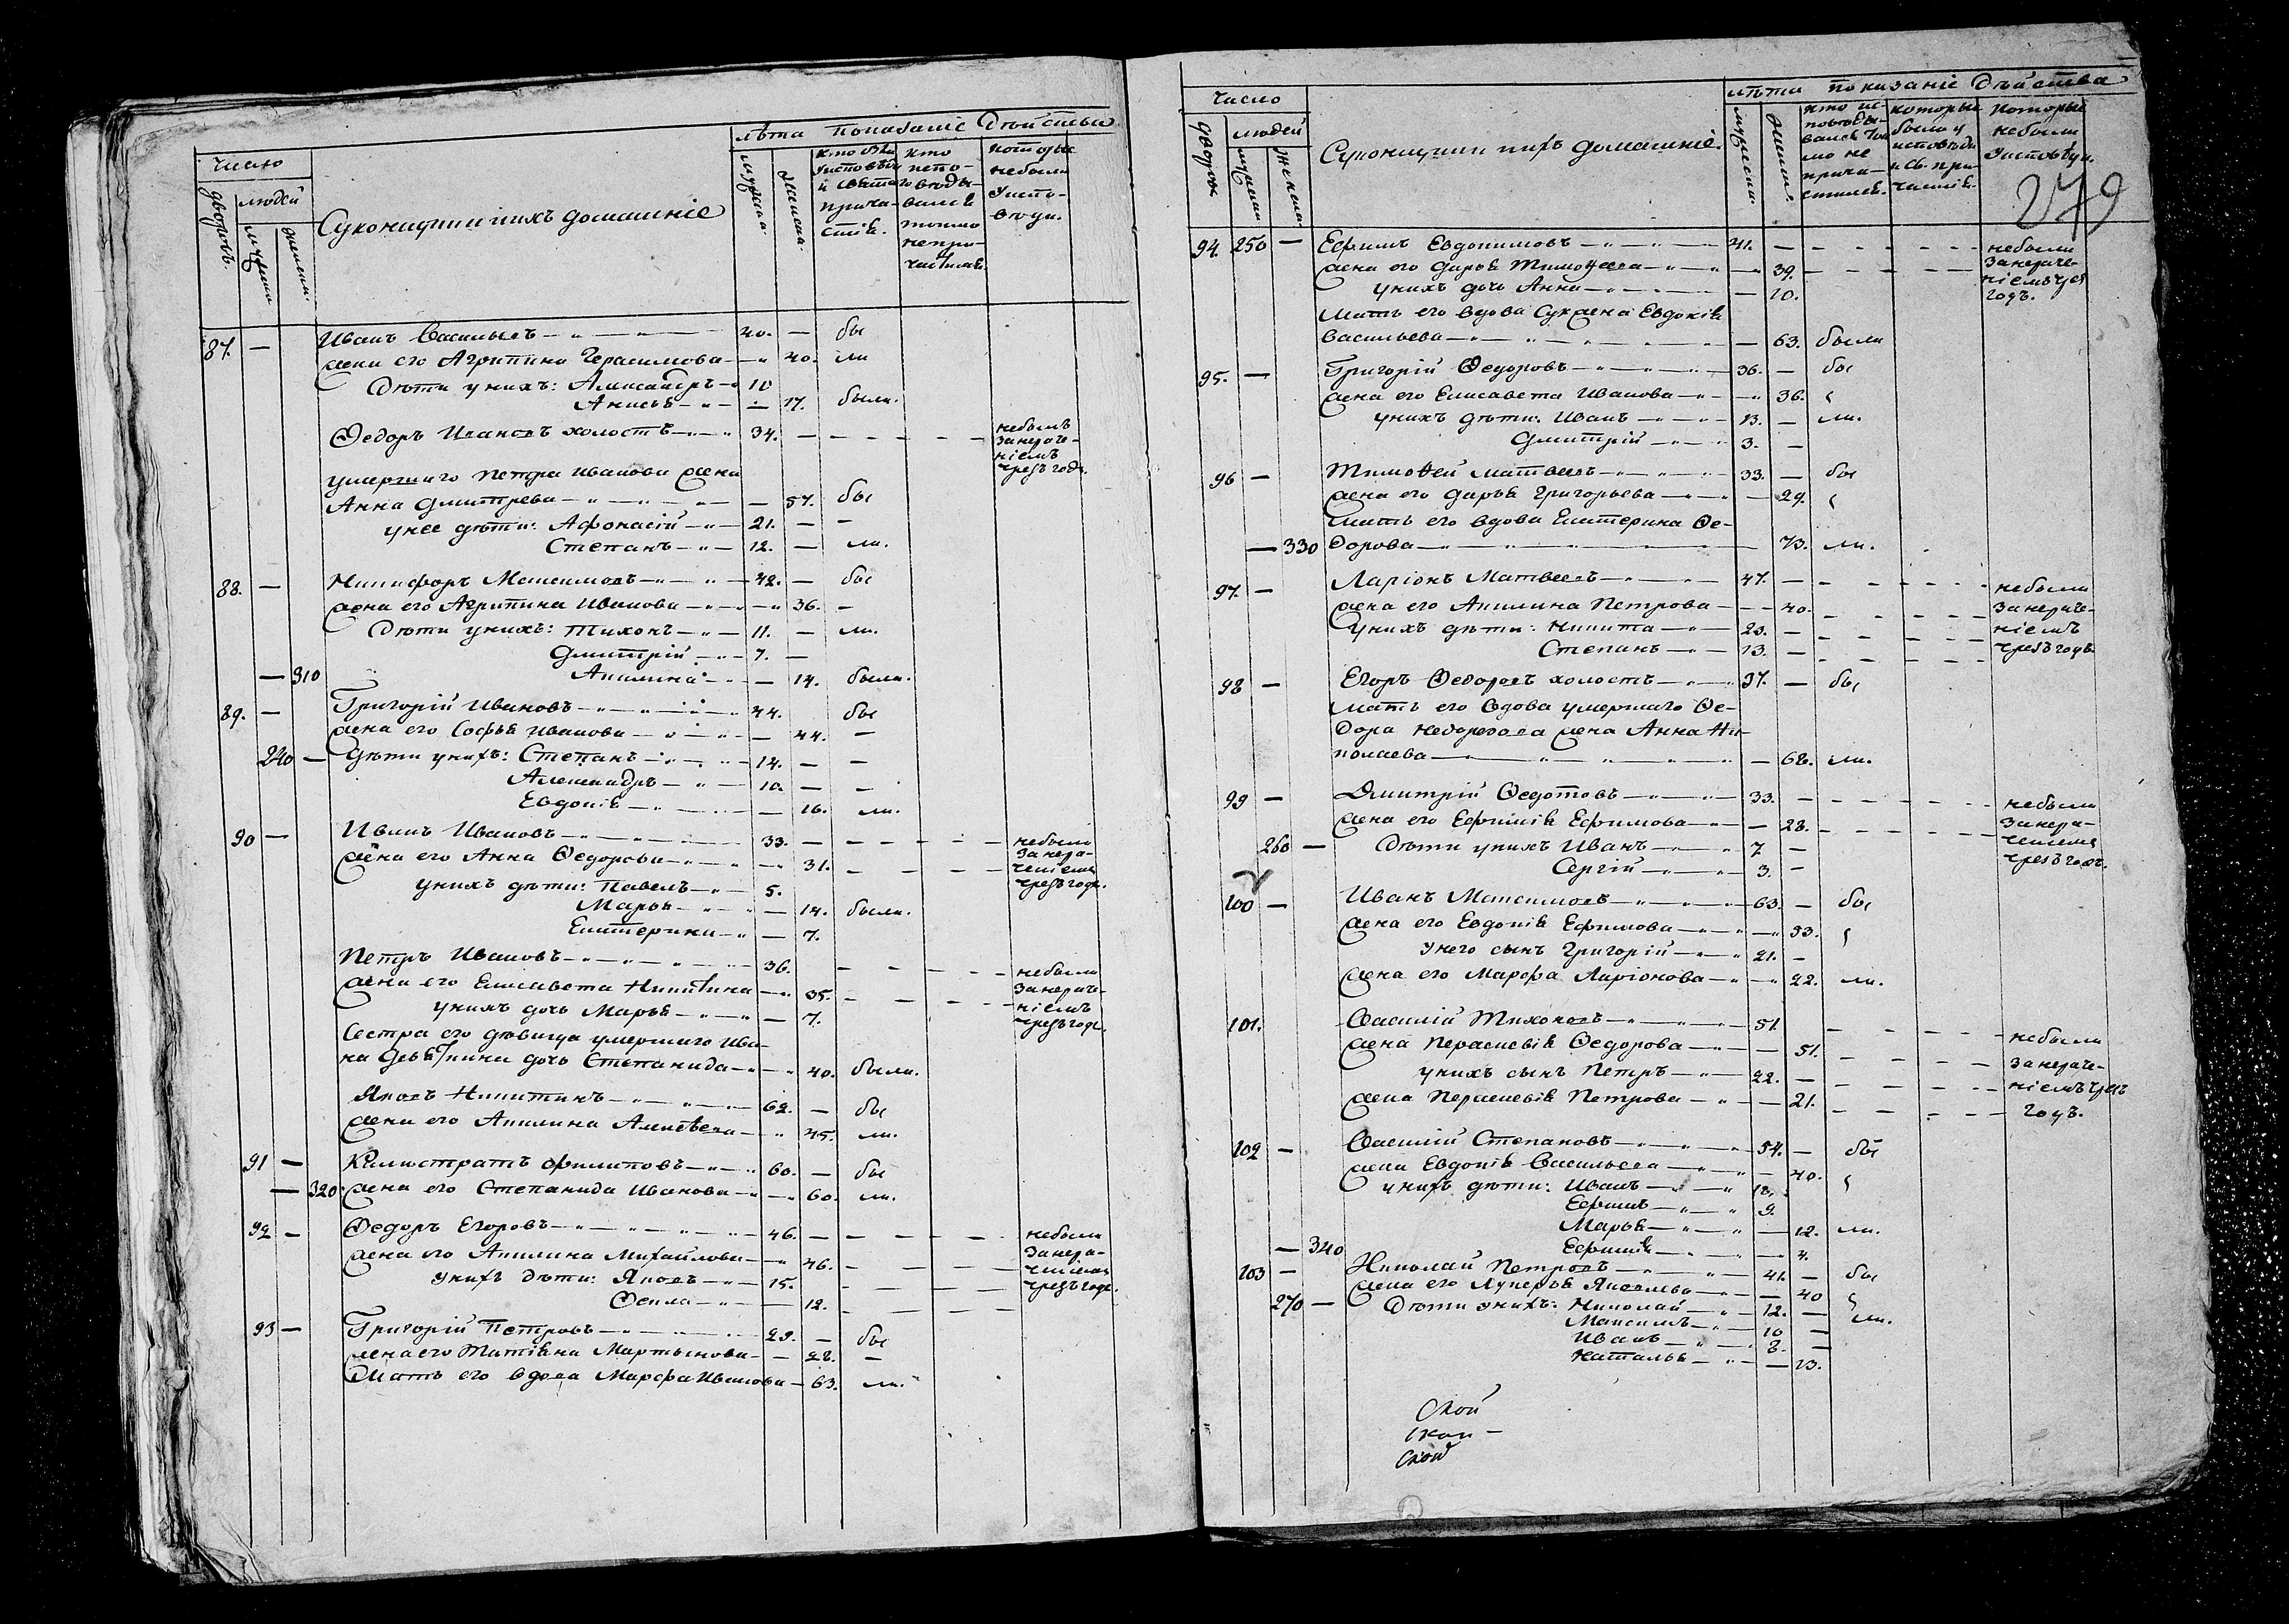 число
людей
дворовъ.
мужеска
женска.
Суконщики ихъ домашніе
лѣта показаніе дѣйства
мужска.
женска.
кто былъ у исповѣди и святаго прича-стія.
кто испо-вѣды-вался токмо непри-частился.
которые небыли уиспо-вѣди.
87. — Иванъ Васильевъ — 40. — бы
жена его Агрипина Герасимова — 40. ли
Дѣти унихъ: Александръ — 10
Анисья — — 17. были.
Ѳедоръ Ивановъ холостъ — 34. — небылъ занераче-ніемъ чрезъ годъ.
умершаго Петра Иванова жена
Анна Дмитрева — — 57. бы
унее дѣти: Афонасій — 21. — —
Степанъ — 12. — ли.
88. — Никифоръ Максимовъ — 42. — бы
жена его Агрипина Иванова — 36. —
Дѣти унихъ: Тихонъ — 11. — ли.
Дмитрій — 7. —
— 310 Акилина — — 14. были.
89. — Григорій Ивановъ — 44. бы
жена его Софья Иванова — — 44. —
240 — Дѣти унихъ: Степанъ — 14. — —
Александръ — 10. — —
Евдокія — — 16. ли.
90 — Иванъ Ивановъ — 33. — небыли занера-ченіемъ чрезъ годъ.
жена его Анна Ѳедорова — 31.
унихъ дѣти: Павелъ — 5.
Марья — — 14. были.
Екатерина — — 7.
Петръ Ивановъ — 36. — небыли занераче-ніемъ чрезъ годъ.
жена его Елисавета Никитина — 35.
унихъ дочь Марья — — 7.
Сестра его дѣвица умершаго Ива-
на дочь Степанида — 40. были.
Яковъ Никитинъ — 62. — бы
жена его Акилина Алексѣева — 45. ли.
91 — Калистратъ Филиповъ — 60. — бы
— 320 жена его Степанида Иванова — 60. ли.
92 — Ѳедоръ Егоровъ — 46. — небыли занера-ченіемъ чрезъ годъ.
жена его Акилина Михайлова — 46.
унихъ дѣти: Яковъ — 15.
Ѳекла — — 12.
93 — Григорій Петровъ — 29. — бы
жена его Татіяна Мартынова — — 28. —
Мать его вдова Марфа Иванова — 63. ли.
число
людей
дворовъ
мужеска
женска
Суконщики ихъ домашніе.
лѣта показаніе дѣйства
мужеска.
женска.
кто ис-повѣды-вался ток-мо не прича-стился.
которые были у исповѣди и Св. при-частія.
которые небыли уисповѣди.
279
94. 250 — Ефимъ Евдокимовъ — 41. — небыли занераче-ніемъ чрез годъ.
жена его Дарья Тимоѳеева — 39.
унихъ дочь Анна — — 10.
Мать его вдова Евдокія
Васильева — — 63. были
95. — Григорій Ѳедоровъ — 36. — бы
жена его Елисавета Иванова — 36.
унихъ дѣти: Иванъ — 13. — ли.
Дмитрій — 3. —
96 — Тимоѳей Матвеевъ — 33. — бы
жена его Дарья Григорьева — — 29.
мать его вдова Екатерина Ѳе-
— 330 дорова — 73. ли.
97. — Ларіонъ Матвеевъ — 47. — небыли занераче-ніемъ чрезъ годъ.
жена его Акилина Петрова — 40.
унихъ дѣти: Никита — 23. —
Степанъ — 13. —
98 — Егоръ Ѳедоровъ холостъ — 37. — бы
мать его вдова умершаго Ѳе-
дора жена Анна Ни-
колаева — — 68. ли.
99 — Дмитрій Ѳедотовъ — 33. — небыли занера-ченіемъ чрезъ годъ.
жена его Ефимія Ефимова — — 28.
260 — Дѣти унихъ Иванъ — 7 —
Сергій — 3. —
100 — Иванъ Максимовъ — 63. — бы
жена его Евдокія Ефимова — 53.
Унего сынъ Григорій — 21. —
жена его Марфа Ларіонова — 22. ли.
101. Василій Тихоновъ — 51. небыли занераче-ніемъ чрезъ годъ.
жена Пераскевія Ѳедорова — — 51.
унихъ сынъ Петръ — 22. —
жена Пераскевія Петрова — — 21.
102 — Василій Степановъ — 54. — бы
жена Евдокія Васильева — — 40.
унихъ дѣти: Иванъ — 18.
Ефимъ — 9.
Марья — — 12. ли.
— 340 Ефимія — — 4.
103 — Николай Петровъ — 41. — бы
жена его Лукерья Яковлева — — 40
270 — Дѣти унихъ: Николай — 12. — ли.
Максимъ — 10 —
Иванъ — 8. —
Наталья — — 13.